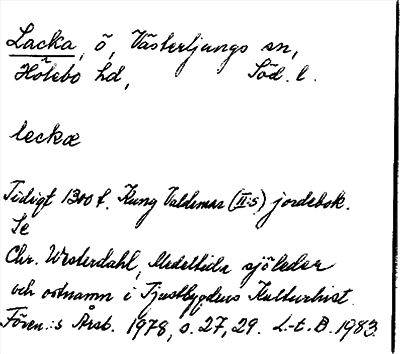 Lacka, ö, Västerljungs sn,
Hölebo hd, Söd. l.
leckæ
Tidigt 1300 t. Kung Valdemar (II:s) jordebok.
Se
Chr. Westerdahl, Medeltida sjöleder
och ortnamn i Tjustbygdens Kulturhist.
Fören.:s Årsb. 1978, s. 27, 29. L-t. B. 1983.